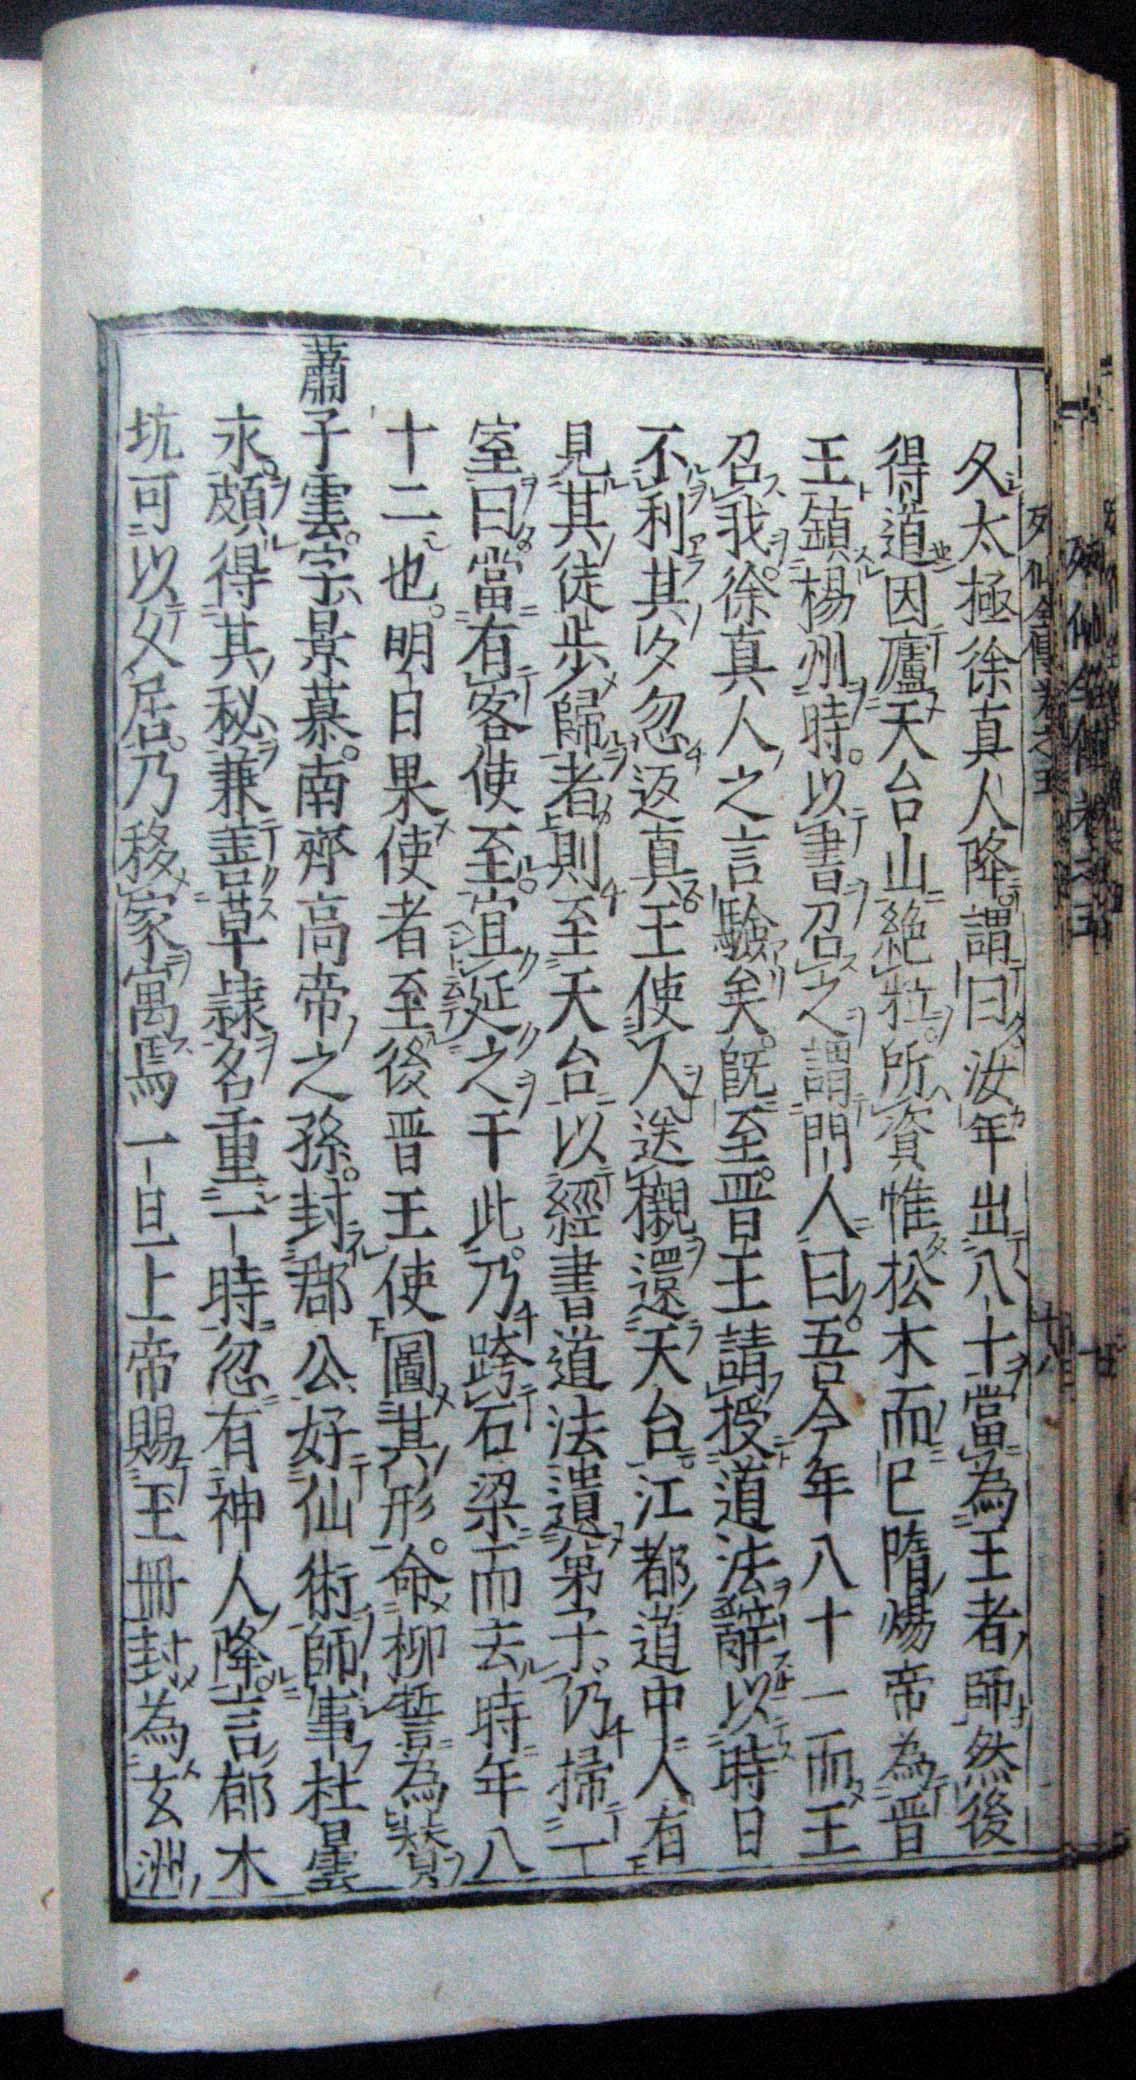 夕太極徐真人降謂曰汝年出八十當為王者師然後
得道因廬天台山絶粒所資惟松木而已隋煬帝為晋
王鎮楊州時以書召之謂門人曰吾今年八十一而王
召我徐真人之言驗矣既至晋王請授道法辭以時日
不利其夕忽返真王使人送櫬還天台江都道中人有
見其徒歩歸者則至天台以經書道法遺弟子仍掃一
室曰當有客使至宜延之于此乃跨石梁而去時年八
十二也明日果使者至後晋王使圖其形命柳䛒為賛
蕭子雲字景慕南齊高帝之孫封郡公好仙術師事杜曇
永頗得其秘兼善草隷名重一時忽有神人降言郁木
坑可以久居乃移家寓焉一旦上帝賜玉冊封為玄洲
列仙全傳卷之五
十八